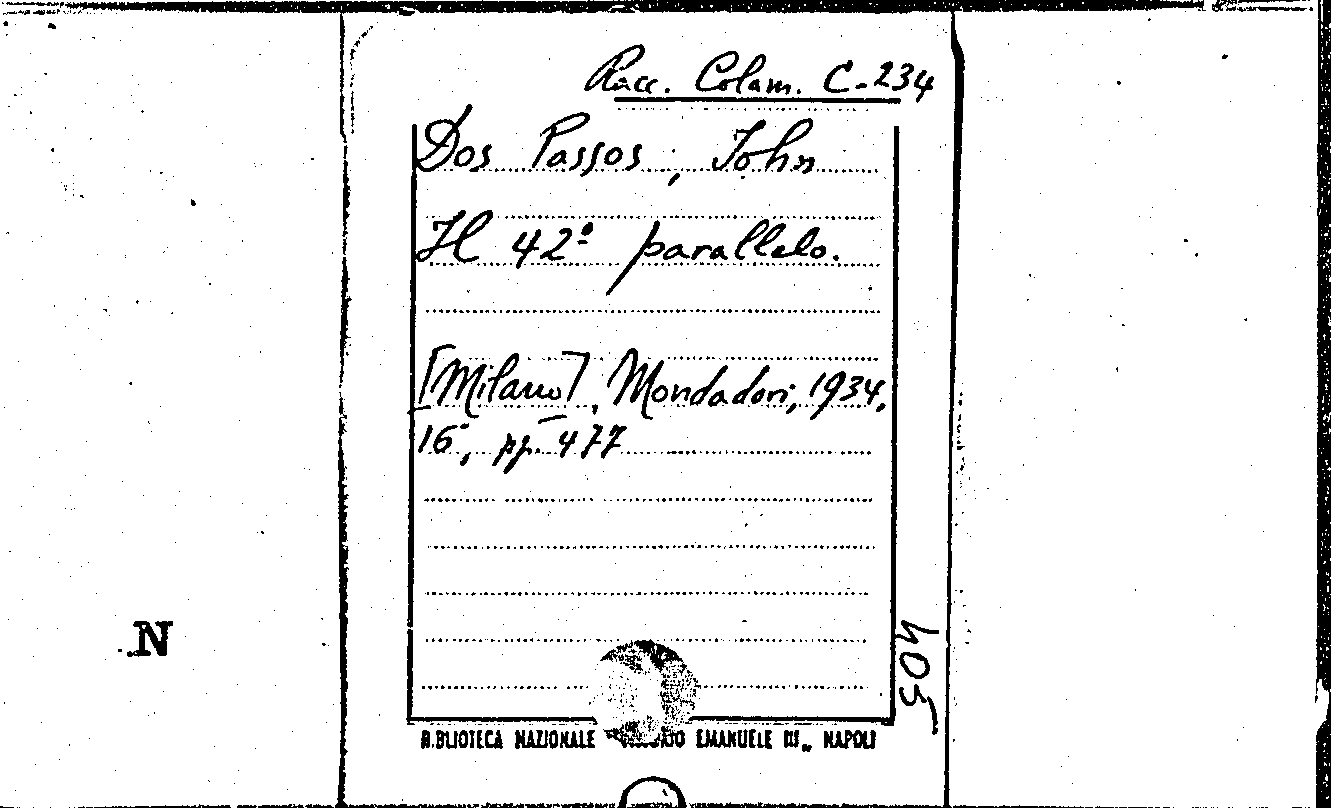 Racc. Colam. C-234
Dos Passos, John
Il 42º parallelo.
[Milano], Mondadori, 1934,
16º, pp. 477
405
N
BIBLIOTECA NAZIONALE EMANUELE III„ NAPOLI